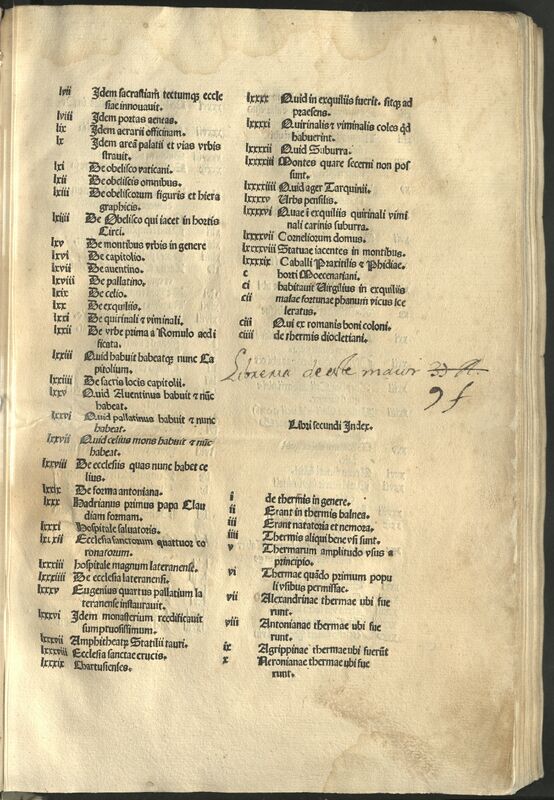 lvii Idem sacrastiam tectumq; eccle
siae innovauit.
lviii Idem portas aeneas.
lix Idem aerarii officinam.
lx Idem areā palatii et vias vrbis
strauit.
lxi De obelisco vaticani.
lxii De obeliscis omnibus.
lxiii De obeliscorum figuris et hiera
graphicis.
lxiiii De Obelisco qui iacet in hortis
Circi.
lxv De montibus vrbis in genere
lxvi De capitolio.
lxvii De auentino.
lxviii De pallatino.
lxix De celio.
lxx De exquiliis.
lxxi De quirinali & viminali.
lxxii De vrbe prima a Romulo aedi
ficata.
lxxiii Quid habuit habeatq; nunc Ca
pitolium.
lxxiiii De sacris locis capitolii.
lxxv Quid Auentinus habuit & nūc
habeat.
lxxvi Quid pallatinus habuit & nunc
habeat.
lxxvii Quid celius mons habuit & nūc
habeat.
lxxviii De ecclesiis quas nunc habet ce
lius.
lxxix De forma antoniana.
lxxx Hadrianus primus papa Clau
diam formam.
lxxxi Hospitale saluatoris.
lxxxii Ecclesia sanctorum quattuor co
ronatorum.
lxxxiii hospitale magnum lateranense.
lxxxiiii De ecclesia lateranensi.
lxxxv Eugenius quartus pallatium la
teranense instaurauit.
lxxxvi Idem monasterium reedificauit
sumptuosissimum.
lxxxvii Amphitheatrū Statilii tauri.
lxxxviii Ecclesia sanctae crucis.
lxxxix Chartusienses.
lxxxx Quid in exquiliis fuerit. sitq; ad
praesens.
lxxxxi Quirinalis & viminalis coles qd
habuerint.
lxxxxii Quid Suburra.
lxxxxiii Montes quare secerni non pos
sunt.
lxxxxiiii Quid ager Tarquinii.
lxxxxv Vrbs pensilis.
lxxxxvi Quae i exquiliis quirinali vimi
nali carinis suburra.
lxxxxvii Corneliorum domus.
lxxxxviii Statuae iacentes in montibus.
lxxxxix Caballi Praxitilis & Phidiae.
c horti Moecenatiani.
ci habitauit Virgilius in exquiliis
cii malae fortunae phanum vicus sce
leratus.
ciii Qui ex romanis boni coloni.
ciiii de thermis diocletiani.
Libreria
Libri secundi Index.
i de thermis in genere.
ii Erant in thermis balnea.
iii Erant natatoria et nemora.
iiii Thermis aliqui bene vsi sunt.
v Thermarum amplitudo vsus a
principio.
vi Thermae quādo primum popu
li vsibus permissae.
vii Alexandrinae thermae ubi fue
runt.
viii Antonianae thermae ubi fue
runt.
ix Agrippinae thermae ubi fuerūt
x Neronianae thermae ubi fue
runt.